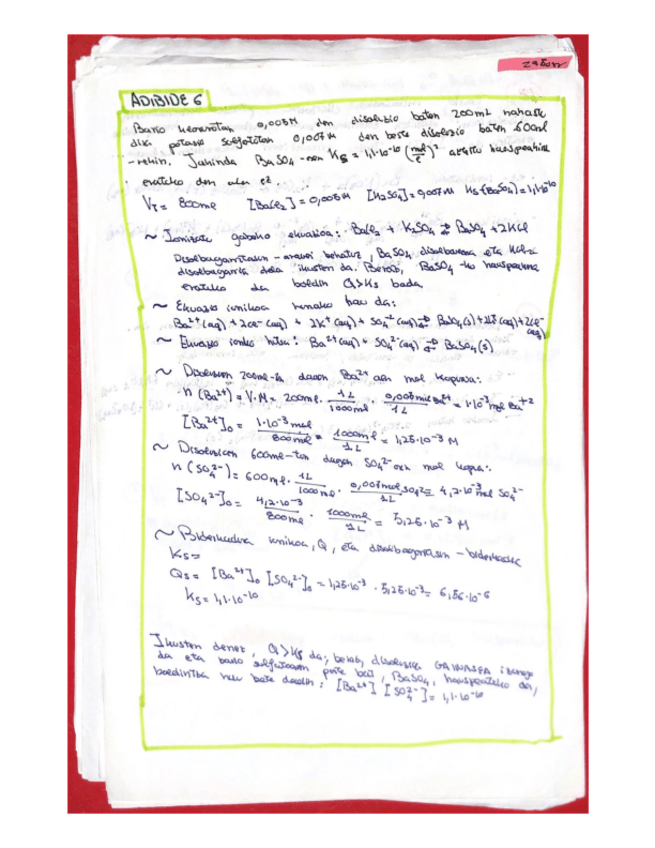 ADIBIDE 6
Bario klorurotan 0,005M den disoluzio baten 200ml nahastu
dira potasio sulfatotan 0,007M den beste disoluzio baten 600ml
-rekin. Jakinda BaSO4-ren Ks = 1,1·10⁻¹⁰ (mol/L)² hauspeakina
eratuko den ala ez.
VT = 800ml [BaCl2] = 0,005M [K2SO4] = 0,007M Ks (BaSO4) = 1,1·10⁻¹⁰
~ Ionizatu gabeko ekuazioa: BaCl2 + K2SO4 ⇄ BaSO4 + 2KCl
Disolbagarritasun-arauei behatuz, BaSO4 disolbaezina eta KCl
disolbagarria dela ikusten da. Beraz, BaSO4-ko hauspeakina
eratuko da baldin Q>Ks bada
~ Ekuazio ionikoa honako hau da:
Ba²⁺(aq) + 2Cl⁻(aq) + 2K⁺(aq) + SO4²⁻(aq) ⇄ BaSO4(s) + 2K⁺(aq) + 2Cl⁻(aq)
~ Ekuazio ioniko : Ba²⁺(aq) + SO4²⁻(aq) ⇄ BaSO4(s)
~ Disoluzioan 200ml-tan dagoen Ba²⁺-aren mol kopurua:
n (Ba²⁺) = V·M = 200ml · 1L/1000ml · 0,005mol Ba²⁺/1L = 1·10⁻³ mol Ba⁺²
[Ba²⁺]₀ = 1·10⁻³ mol/800ml · 1000ml/1L = 1,25·10⁻³ M
~ Disoluzioan 600ml-tan dagoen SO4²⁻-ren mol kopurua:
n (SO4²⁻) = 600ml · 1L/1000ml · 0,007mol SO4²⁻/1L = 4,2·10⁻³ mol SO4²⁻
[SO4²⁻]₀ = 4,2·10⁻³/800ml · 1000ml/1L = 5,25·10⁻³ M
~ Biderkadura ionikoa, Q, eta disolbagarritasun-biderkadura
Ks=
Qs = [Ba²⁺]₀ [SO4²⁻]₀ = 1,25·10⁻³ · 5,25·10⁻³ = 6,56·10⁻⁶
Ks = 1,1·10⁻¹⁰
Ikusten denez, Q>Ks da; beraz, disoluzioa GAINASEA izango
da eta bario sulfatoaren parte bat, BaSO4, hauspeatuko da,
baldintza hau bete dadin: [Ba²⁺] [SO4²⁻] = 1,1·10⁻¹⁰